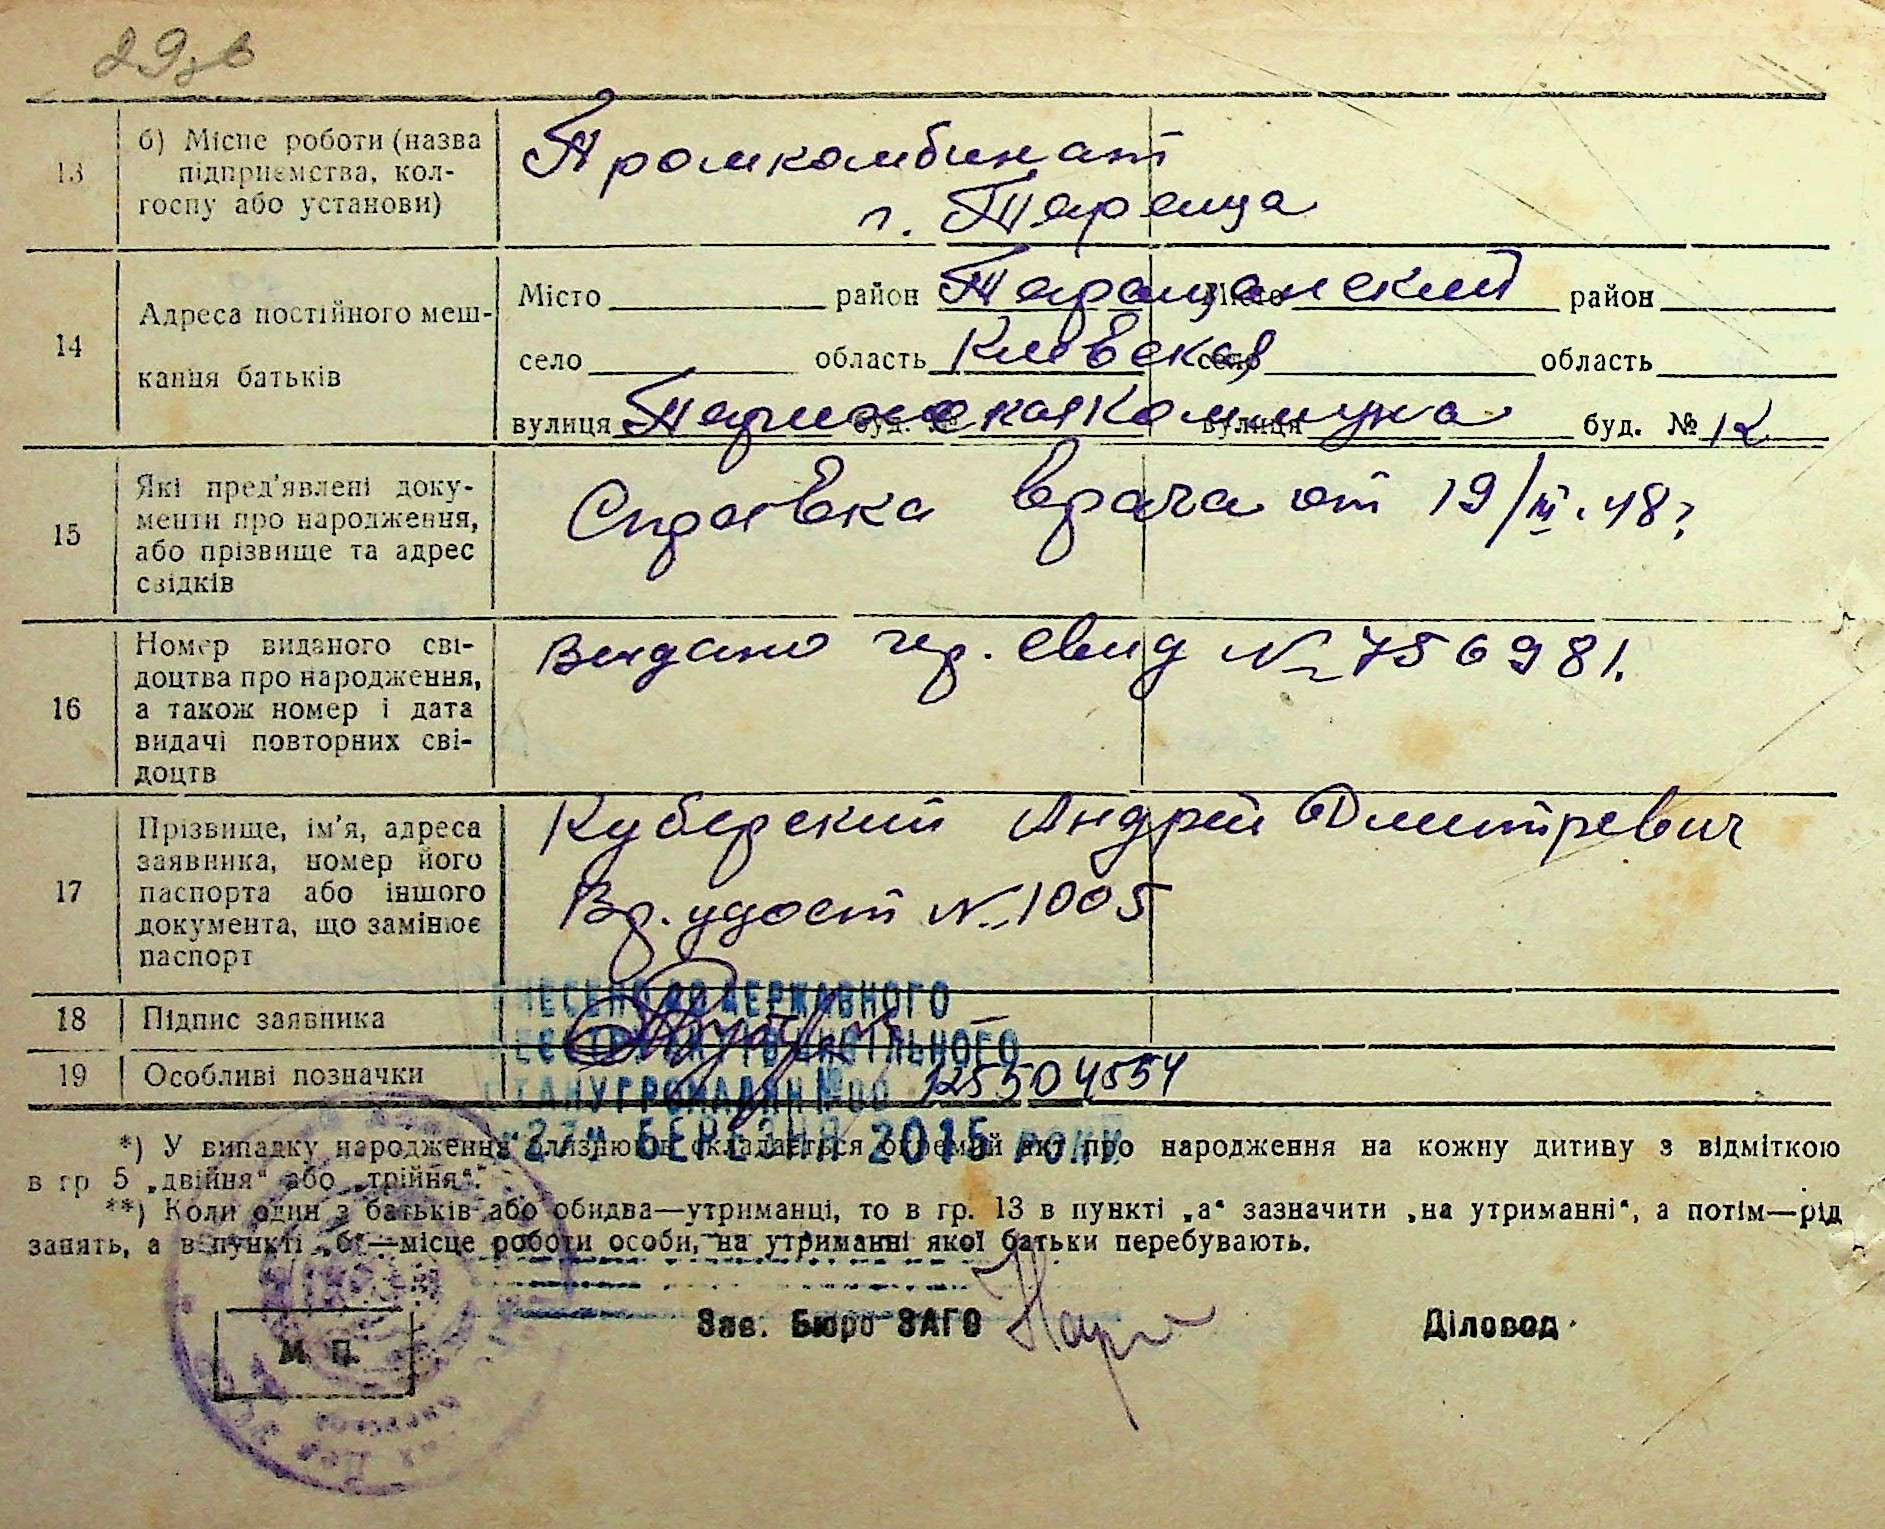 29зв
13 б) Місце роботи (назва
підприємства, кол-
госпу або установи)
Промкомбинат
г. Тараща
14 Адреса постійного меш-
кання батьків
Місто район Таращанский Місто район
село область Киевская село область
вулиця Парижская Коммуна буд. № вулиця буд. № 12
15 Які пред'явлені доку-
менти про народження,
або прізвище та адрес
свідків
Справка врача от 19/III.48г
16 Номер виданого сві-
доцтва про народження,
а також номер і дата
видачі повторних сві-
доцтв
Видано чер. свид № 756981.
17 Прізвище, ім'я, адреса
заявника, номер його
паспорта або іншого
документа, що замінює
паспорт
Куберский Андрей Дмитревич
Вр. удост № 1005
18 Підпис заявника
19 Особливі позначки
ВНЕСЕНО ДО ДЕРЖАВНОГО
РЕЄСТРУ АКТІВ ЦИВІЛЬНОГО
СТАНУ ГРОМАДЯН № 00 125504554
"27" БЕРЕЗНЯ 2015 РОКУ
*) У випадку народження близнюків складається окремий акт про народження на кожну дитину з відміткою
в гр 5 „двійня“ або „трійня“.
**) Коли один з батьків або обидва—утриманці, то в гр. 13 в пункті „а“ зазначити „на утриманні“, а потім—рід
занять, а в пункті „б“—місце роботи особи, на утриманні якої батьки перебувають.
Зав. Бюро ЗАГС Діловод
М. П.